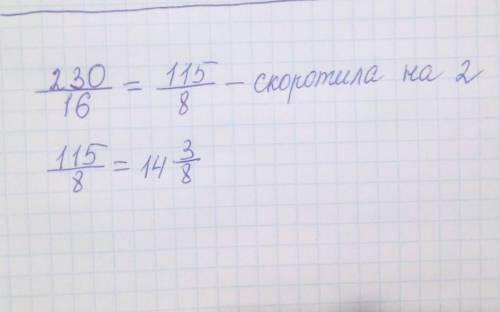 230/16 = 115/8 – скоротила на 2
115/8 = 14 3/8